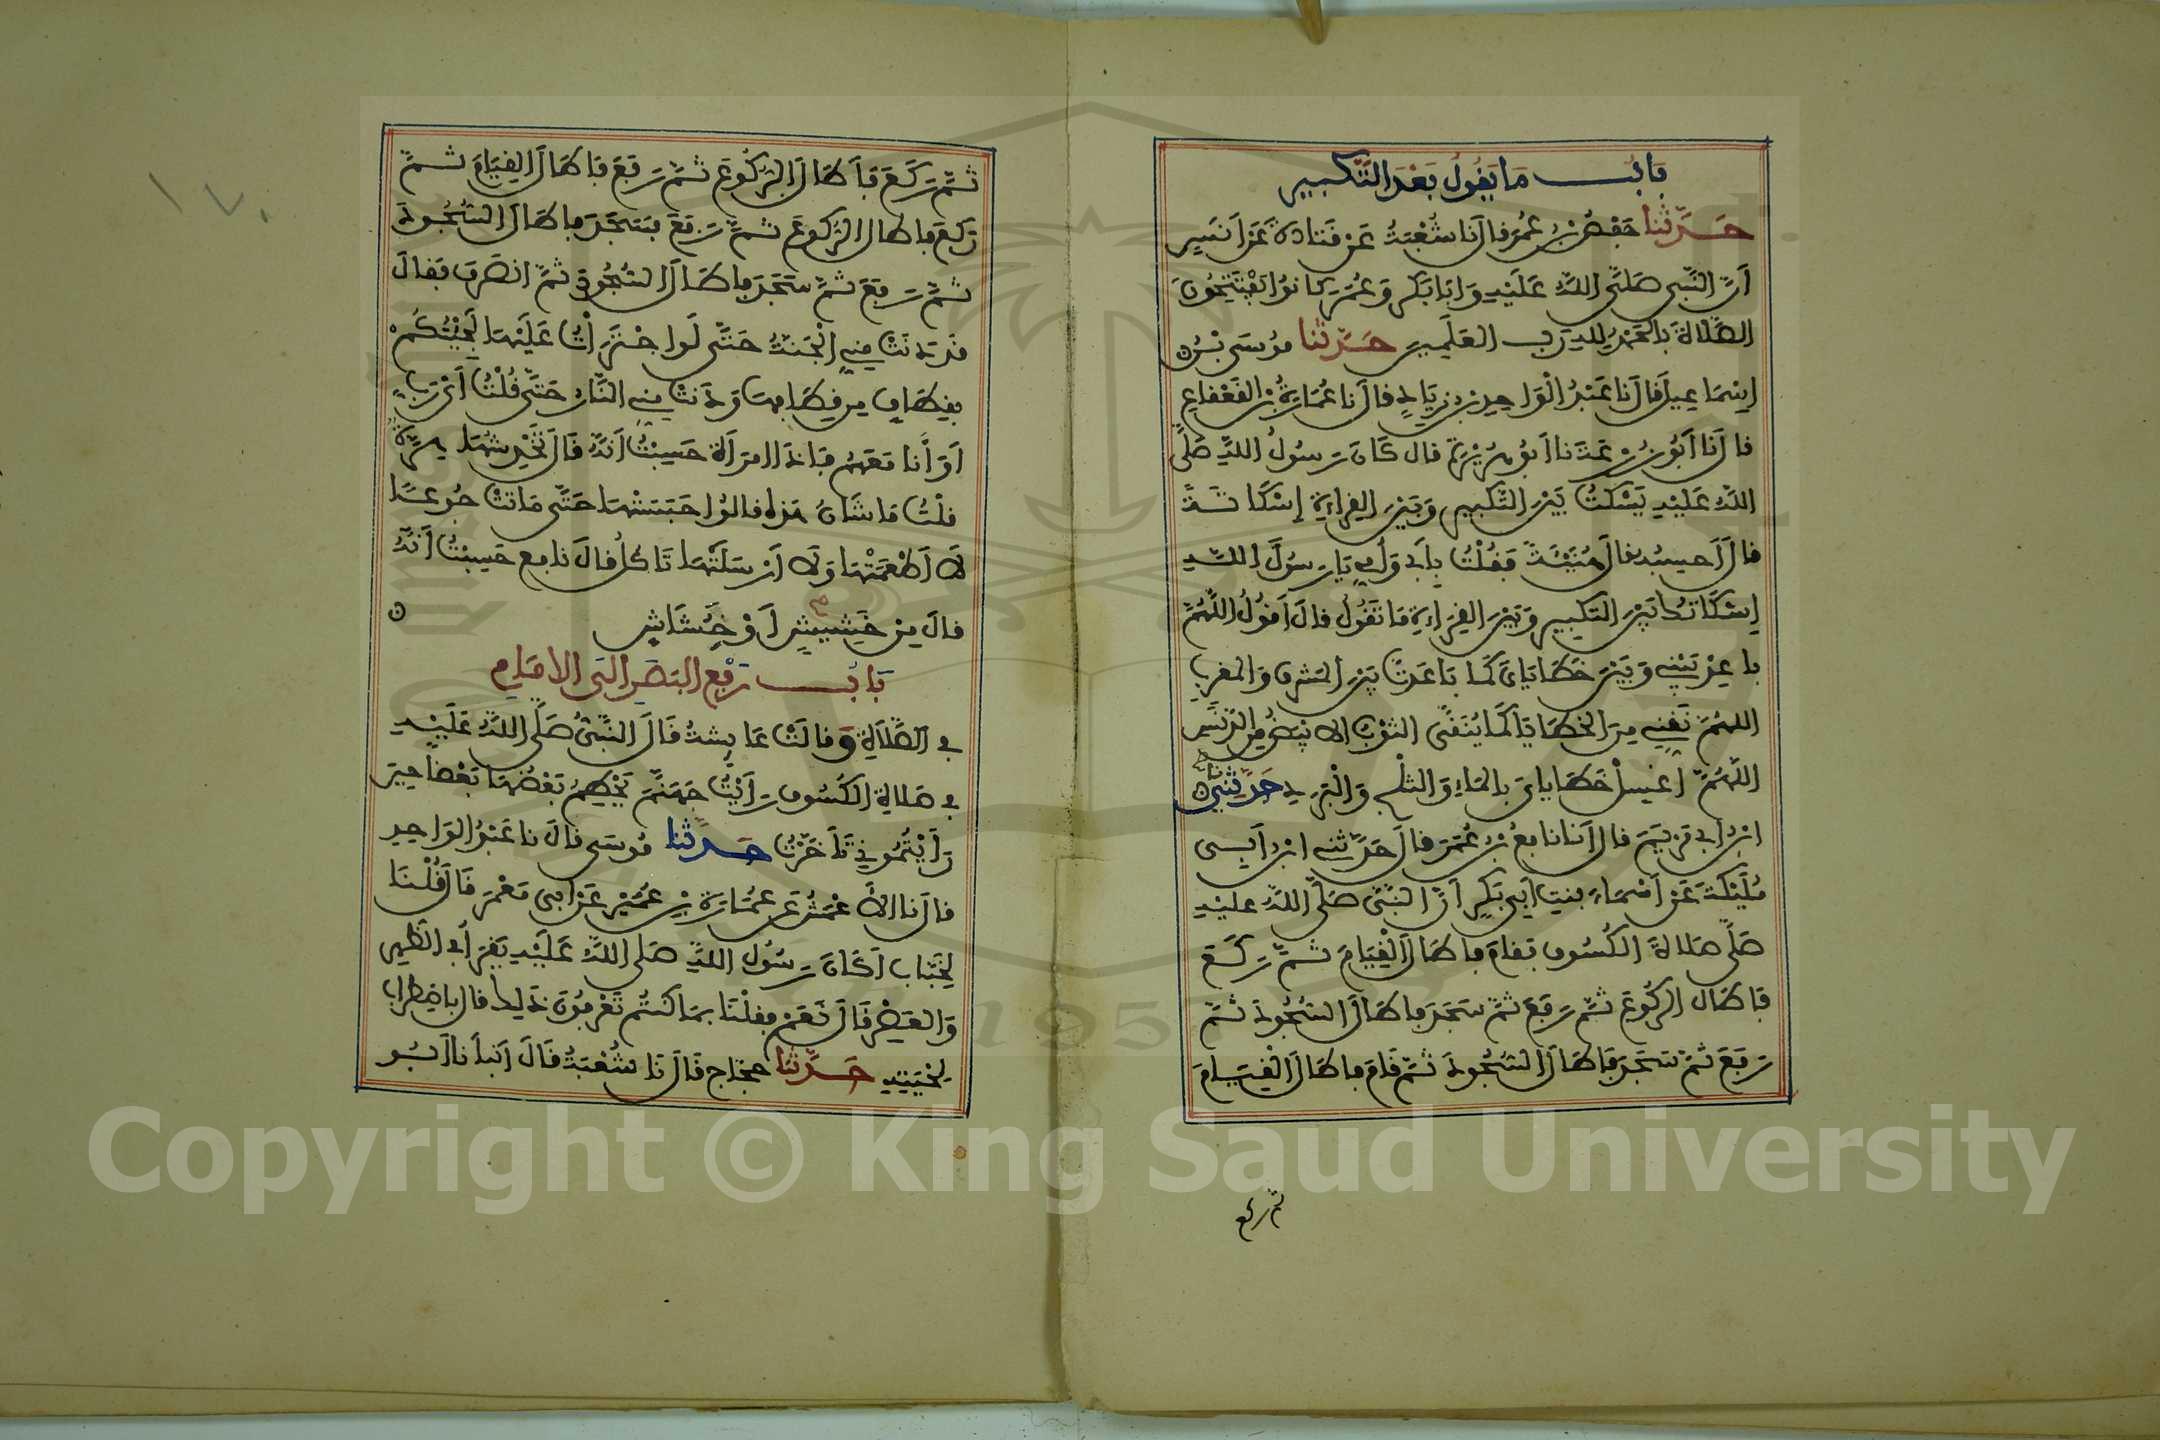 بابُ مَا يَقُولُ بَعْدَ التَّكْبِيرِ
حَدَّثنا حَفْصُ بْنُ عُمَرَ قال نا شُعْبَةُ عَنْ قَتادَةَ عَنْ أَنَسٍ
أَنَّ النَّبِي صَلَّى اللهُ عَلَيْهِ وَأبَا بَكْرٍ وَعُمَرَ كانُوا يَفْتَتِحُونَ
الصَّلاةَ بالحَمْدُ لِلهِ رَبِّ العَلَمِينَ حَدَّثنا مُوسَى بْنُ
إِسْمَاعِيلَ قالَ نا عَبْدُ الْوَاحِدِ بْنُ زِيَادٍ قال نا عُمَارَةُ بْنُ القَعْقاعِ
قال نا أَبُو زُرْعَةَ نا أبُو هُرَيْرَةَ قال كَانَ رَسُولُ اللهِ صَلَّى
اللهُ عَلَيْهِ يَسْكُتُ بَيْنَ التَّكْبِيرِ وَبَيْنَ القِراءَةِ إِسْكَاتَةً
قالَ أَحْسِبُهُ قال هُنَيَّةً فَقُلْتُ بِأَبِي وَأُمِّي يَا رَسُولَ اللهِ
إِسْكَاتُكَ بَيْنَ التَّكْبِيرِ وَبَيْنَ القِرَاءَةِ مَا تَقُولُ قالَ أَقُولُ اللَّهُمَّ
باعِدْ بَيْنِي وَبَيْنَ خَطَايَايَ كَمَا بَاعَدْتَ بَيْنَ المَشْرِقِ وَالمَغْرِبِ
اللهُمَّ نَقِّنِي مِنَ الخَطَايَا كَمَا يُنَقَّى الثَّوْبُ الابْيَضُ مِنَ الدَّنَسِ
اللَّهُمَّ اغْسِلْ خَطَايايَ بِالمَاءِ وَالثَّلْجِ وَالْبَرَدِ حَدَّثَنِي
ابْنُ أَبِي مَرْيَمَ قال أنا نافِعُ بْنُ عُمَرَ قالَ حَدَّثَنِي ابْنُ أَبِي
مُلَيْكَةَ عَنْ أَسْمَاءَ بِنْتِ أَبِي بَكْرٍ أَنَّ النَّبِيَّ صَلَّى اللهُ عليْهِ
صَلَّى صَلَاةَ الكُسُوفِ فَقَامَ فاطَالَ الْقِيَامَ ثُمَّ رَكَعَ
فَاطَالَ الرُّكُوعَ ثُمَّ رَفَعَ ثُمَّ سَجَدَ فاطَالَ السُّجُودَ ثُمَّ
رَفَعَ ثُمَّ سَجَدَ فَاطَالَ السُّجُودَ ثُمَّ قَامَ فاطَالَ الْقِيَامَ
ثم ركع
ثُمَّ رَكَعَ فَأَطَالَ الرُّكُوعَ ثُمَّ رَفَعَ فَاطَالَ القِيَامَ ثُمَّ
رَكَعَ فاطَالَ الرُّكوعَ ثُمَّ رَفَعَ فسَجَدَ فاطَالَ السُّجُودَ
ثُمَّ رَفَعَ ثُمَّ سَجَدَ فاطَالَ السُّجُودَ ثُمَّ انْصَرَفَ فَقَالَ
قَدْ دَنَتْ مِنِّي الْجَنَّةُ حَتَّى لَوِ اجْتَرَأْتُ عَلَيْهَا لَجِئْتُكُمْ
بِقِطَافٍ مِنْ قِطَافِهَا وَدَنَتْ مِنِّي النَّارُ حَتَّى قُلْتُ أَيْ رَبِّ
أَوَ أَنَا مَعَهُمْ فَإذَا امْرَأَةٌ حَسِبْتُ أَنَّهُ قَالَ تَخْدِشُهَا هِرَّةٌ
قُلْتُ مَا شَأنُ هَذِهِ قالُوا حَبَسَتْهَا حَتَّى مَاتَتْ جُوعًا
لاَ أَطْعَمَتْهَا وَلَا أَرْسَلَتْهَا تَاكُلُ قالَ نافِع حَسِبْتُ أَنَّهُ
قالَ مِنْ خَشِيشٍ أَوْ خِشَاشٍ
بَابُ رَفْعِ البَصَرِ الَى الامَامِ
فِي الصَّلَاةِ وَقالَتْ عَايِشَةُ قَالَ النَّبِيُّ صَلَّى اللهُ عَلَيْهِ
فِي صَلَاةِ الكُسُوفِ رَأَيْتُ جَهَنَّمَ يَحْطِمُ بَعْضُهَا بَعْضًا حِينَ
رَأَيْتُمُونِي تَأَخَّرْتُ حَدَّثنا مُوسَى قالَ نا عَبْدُ الوَاحِدِ
قالَ نا الاَعْمَشُ عَن عُمَارَةَ بْنِ عُمَيْرٍ عَنْ أَبِي مَعْمَرٍ قَالَ قُلْنَا
لِخَبَّابٍ أَكَانَ رَسُولُ اللهِ صَلَى اللهُ عَلَيْهِ يَقْرَأُ فِي الظُّهْرِ
وَالعَصْرِ قَالَ نَعَمْ فقُلْنَا بِمَا كنْتُمْ تَعْرِفُونَ ذَلِكَ قال باضْطِرَابِ
لِحْيَتِهِ حَدَّثَنَا حجّاج قَالَ نَا شُعْبَةُ قَالَ أَنبأَنا أَبُو
١٧٠
Copyright © King Saud University
1957